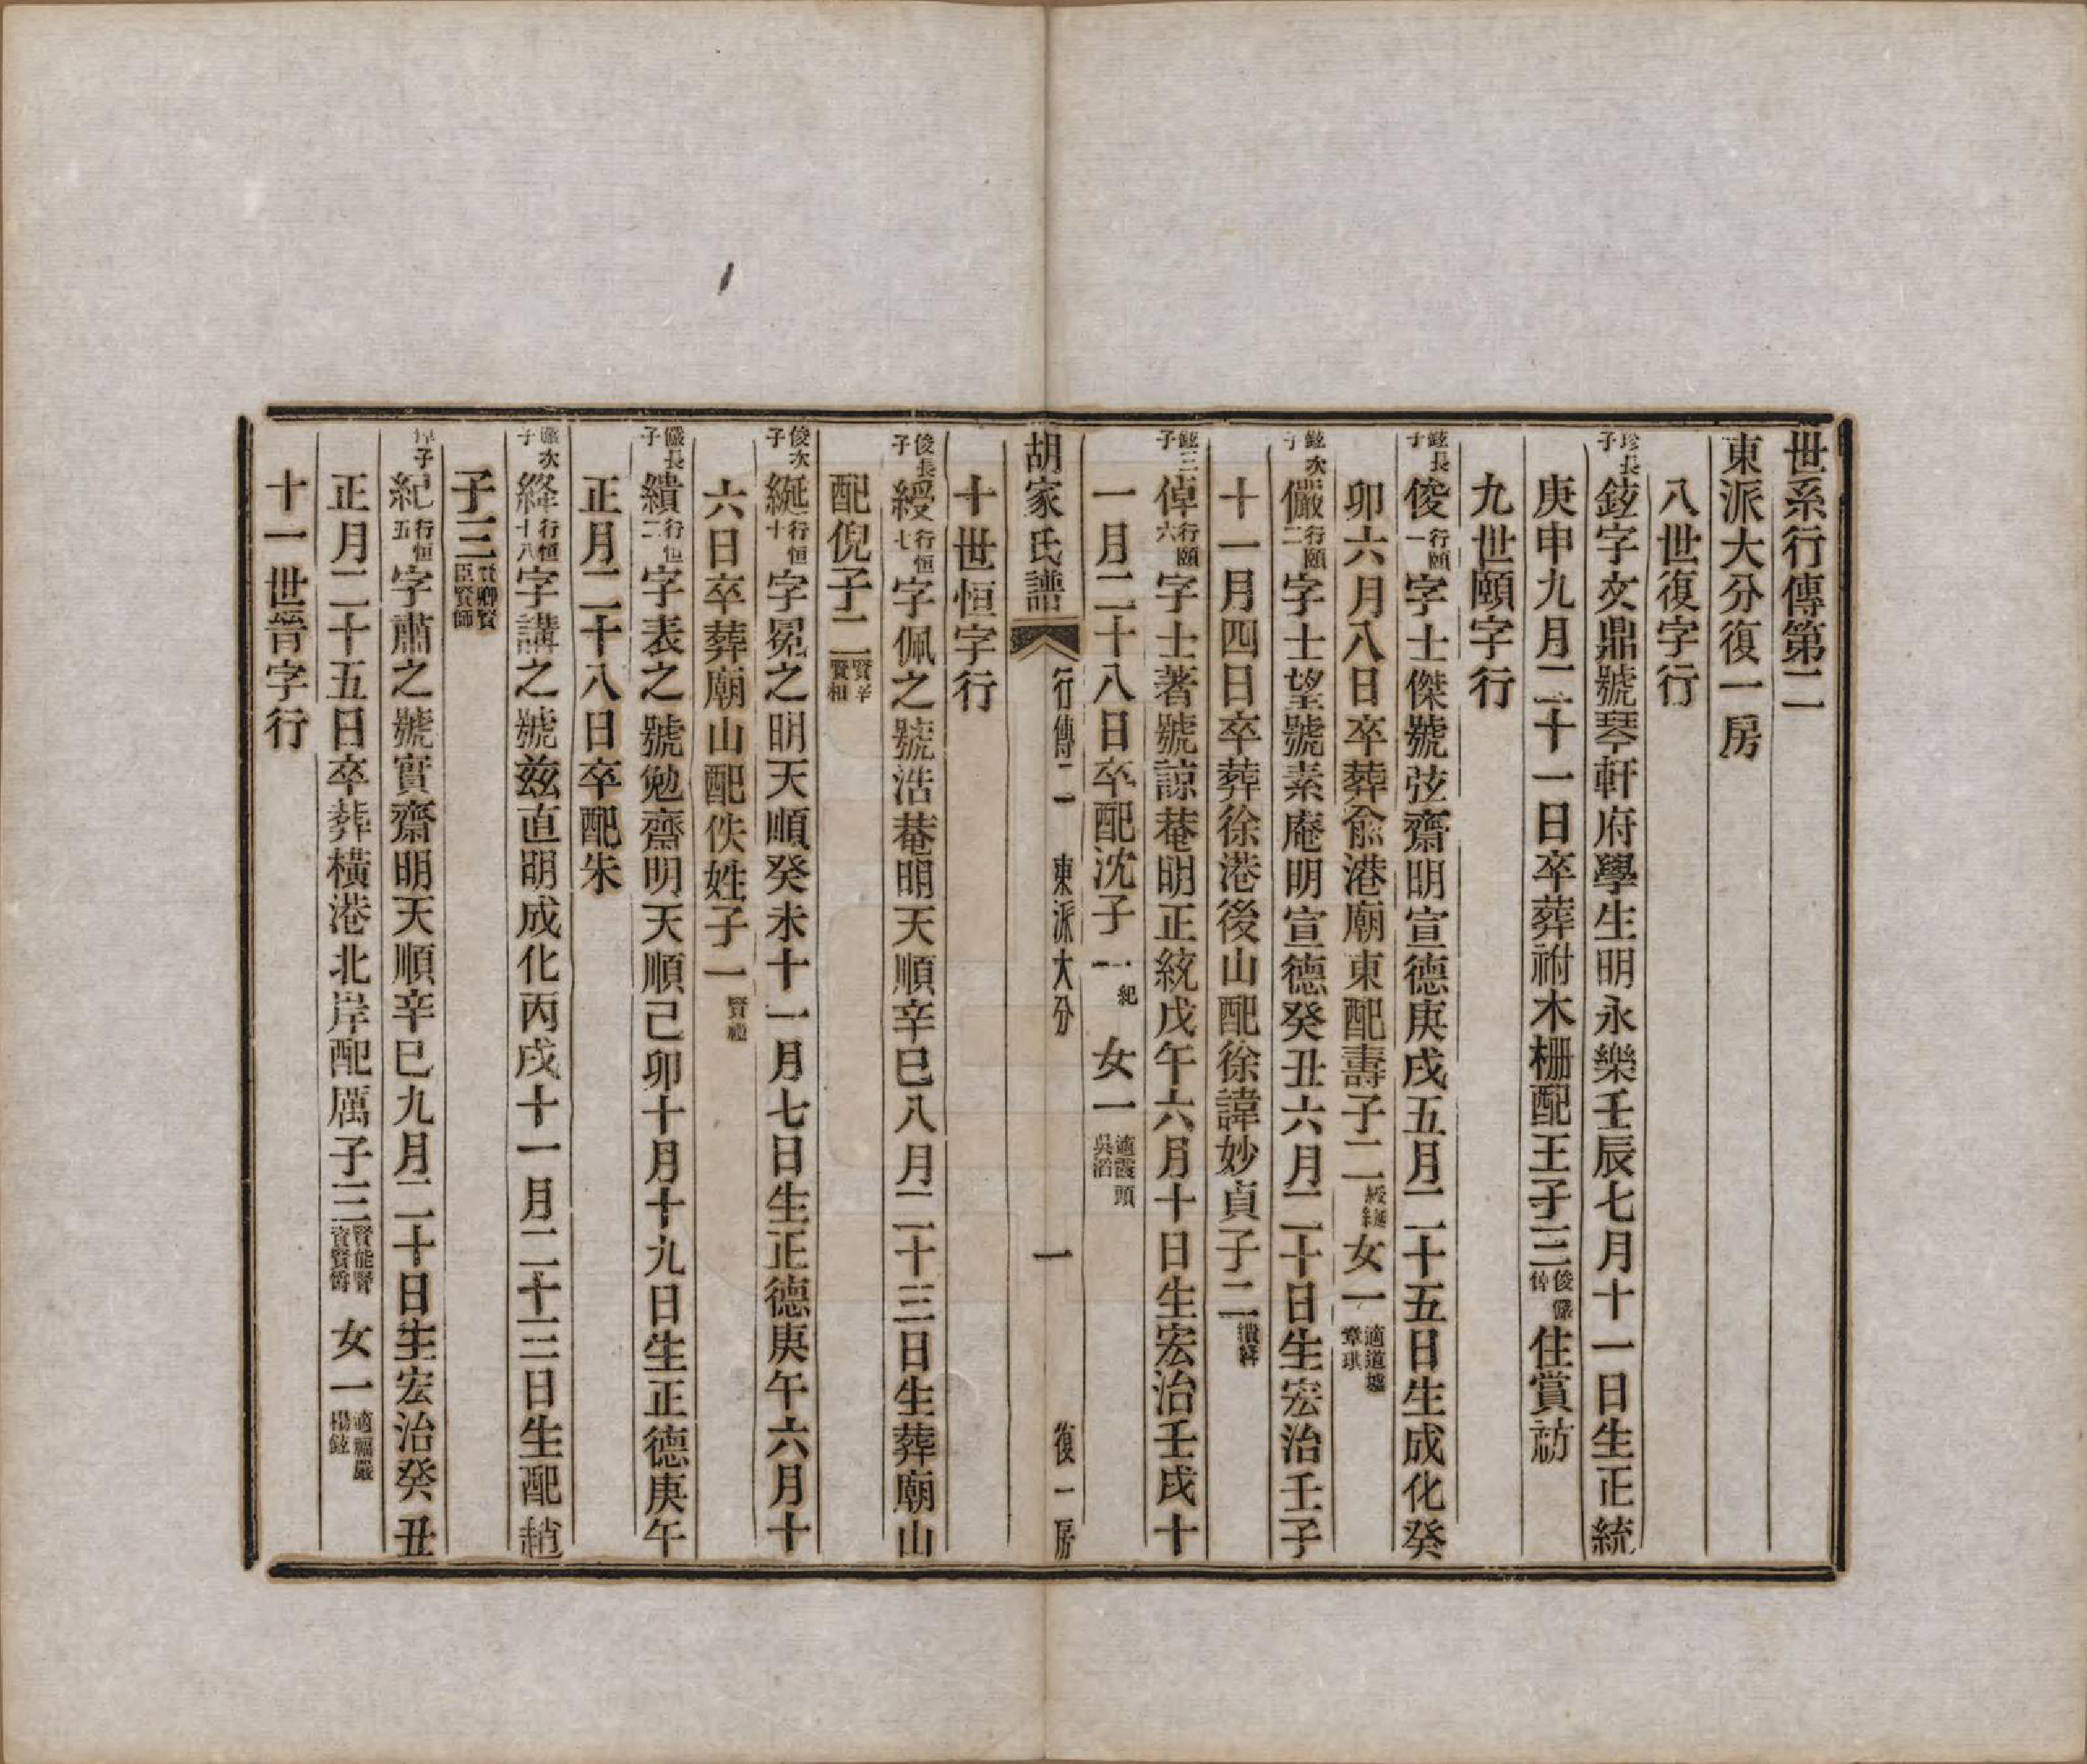 世系行傳第二
東派大分復一房
八世復字行
珍長子鉉字文鼎號琴軒府學生明永樂壬辰七月十一日生正統
庚申九月二十一日卒葬祔木柵配王子三俊儼倬住賞祊
九世頤字行
鉉長子俊行頤一字士傑號弦齋明宣德庚戌五月二十五日生成化癸
卯六月八日卒葬兪港廟東配壽子二綬綖女一適道墟章琪
鉉次子儼行頤二字士望號素庵明宣德癸丑六月二十日生宏治壬子
十一月四日卒葬徐港後山配徐諱妙貞子二繢絳
鉉三子倬行頤六字士著號諒菴明正統戊午六月十日生宏治壬戌十
一月二十八日卒配沈子一紀女一適霞頭吳滔
胡家氏譜 行傳二 東派大分 一 復一房
十世恒字行
俊長子綬行恒七字佩之號浩菴明天順辛巳八月二十三日生葬廟山
配倪子二賢宰賢相
俊次子綖行恒十字冕之明天順癸未十一月七日生正德庚午六月十
六日卒葬廟山配佚姓子一賢禮
儼長子繢行恒二字表之號勉齋明天順己卯十月十九日生正德庚午
正月二十八日卒配朱
儼次子絳行恒十八字講之號茲直明成化丙戌十一月二十三日生配趙
子三賢卿賢臣賢師
倬子紀行恒五字肅之號實齋明天順辛巳九月二十日生宏治癸丑
正月二十五日卒葬橫港北岸配厲子三賢能賢賓賢爵女一適福嚴楊鉉
十一世晉字行